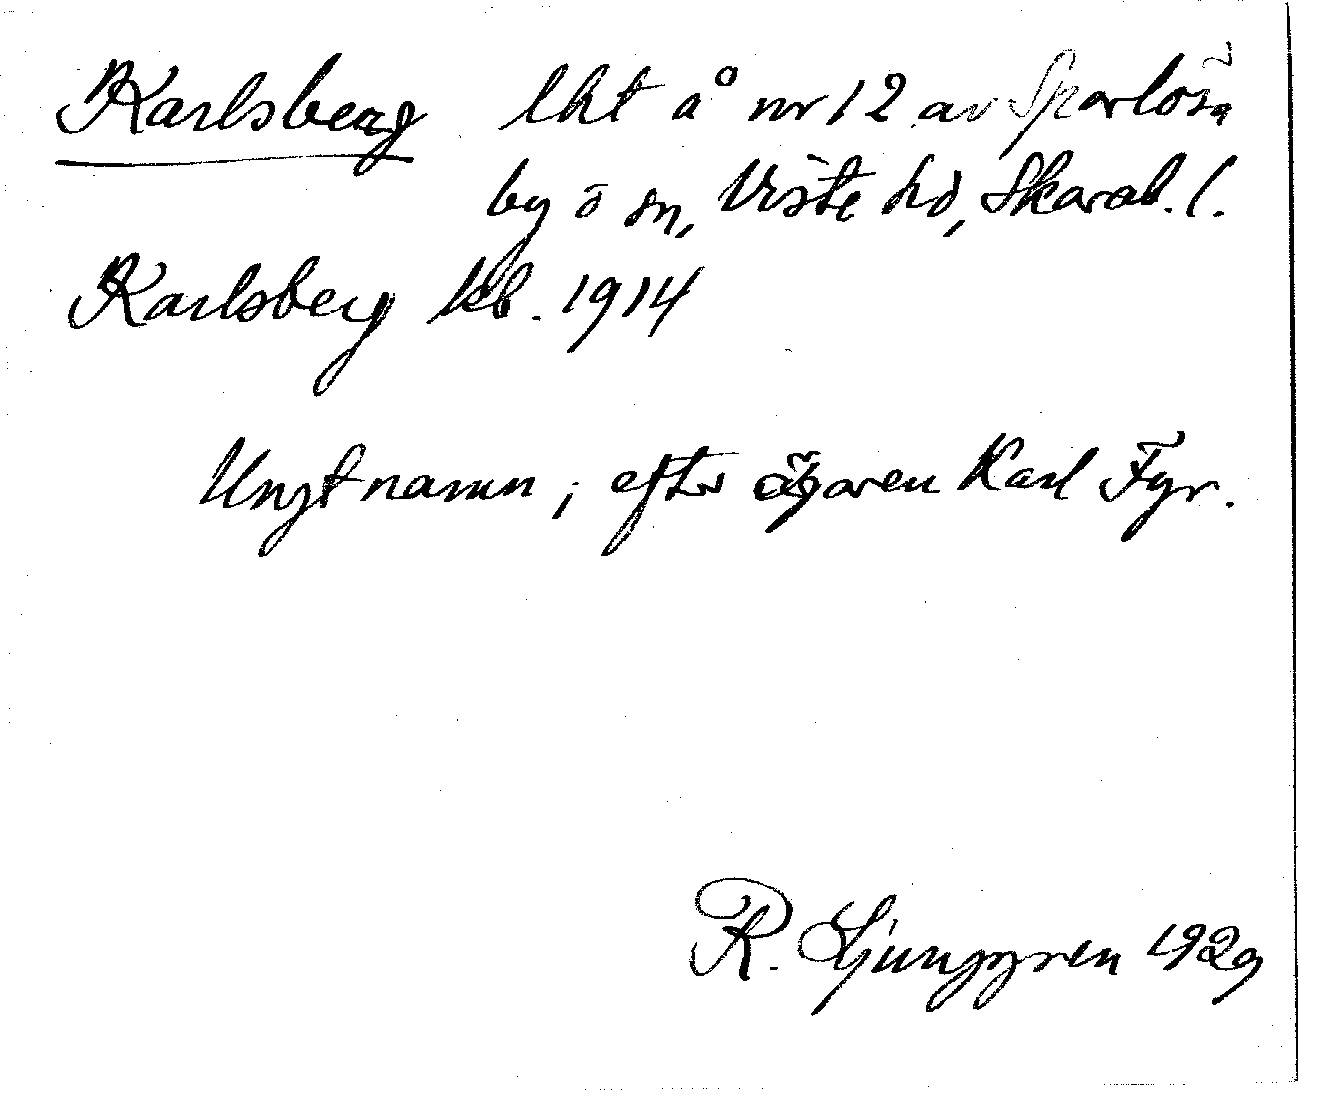 Karlsberg lht å nr 12 av Sparlösa
by o sn, Viste hd, Skarab. l.
Karlsberg kb. 1914
Ungt namn, efter ägaren Karl Fyr.
R. Ljunggren 1929